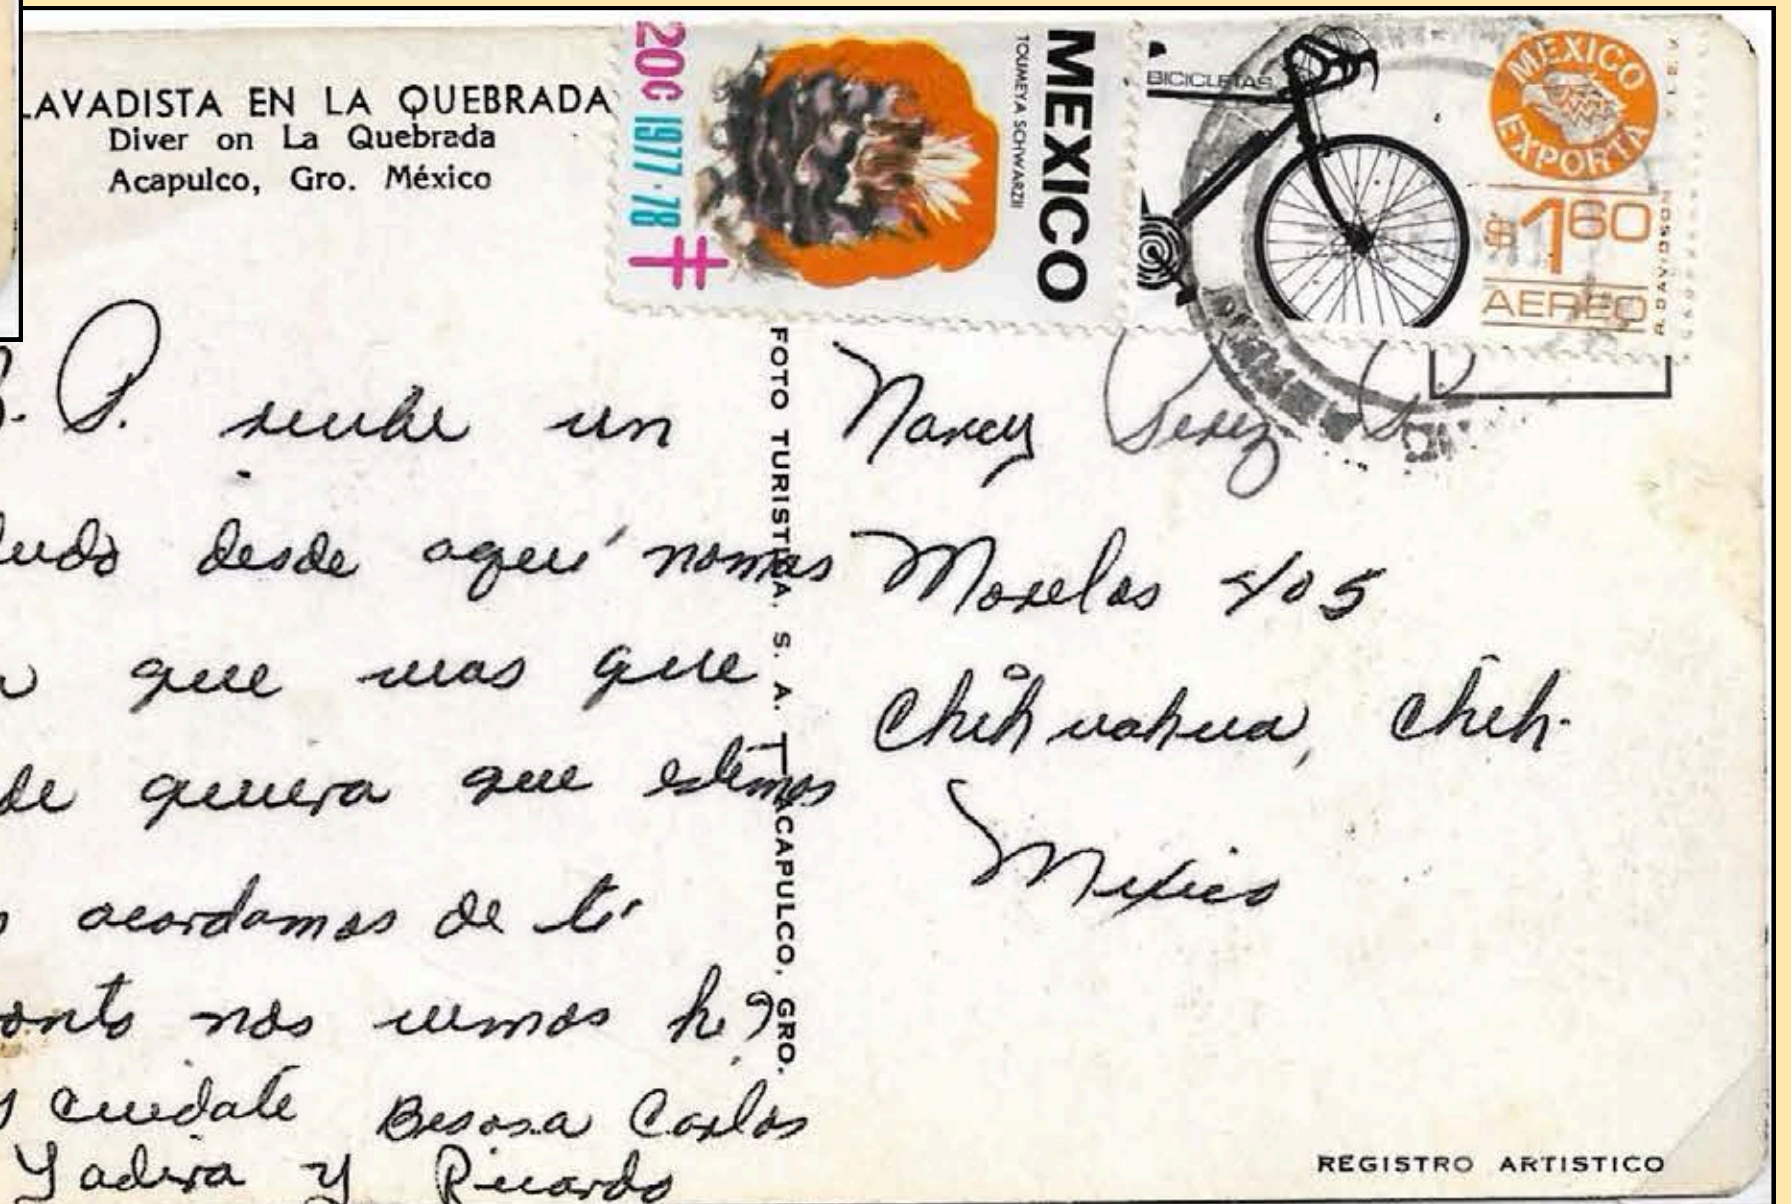 LAVADISTA EN LA QUEBRADA
Diver on La Quebrada
Acapulco, Gro. México
20c 1977-78
TOUMEYA SCHWARZII
MEXICO
BICICLETAS
MEXICO EXPORTA
$160
AEREO
R. DAVIDSON
T.I.E.V.
P. recibe un
ludo desde aquí nomas
que veas que
de quiera que estemos
acordamos de tí
onto nos vemos h?
cuidate Besos a Carlos
Yadira y Ricardo
FOTO TURISTICA, S. A. ACAPULCO, GRO.
Nancy Perez
Morelos 405
Chihuahua, Chih.
México
REGISTRO ARTISTICO